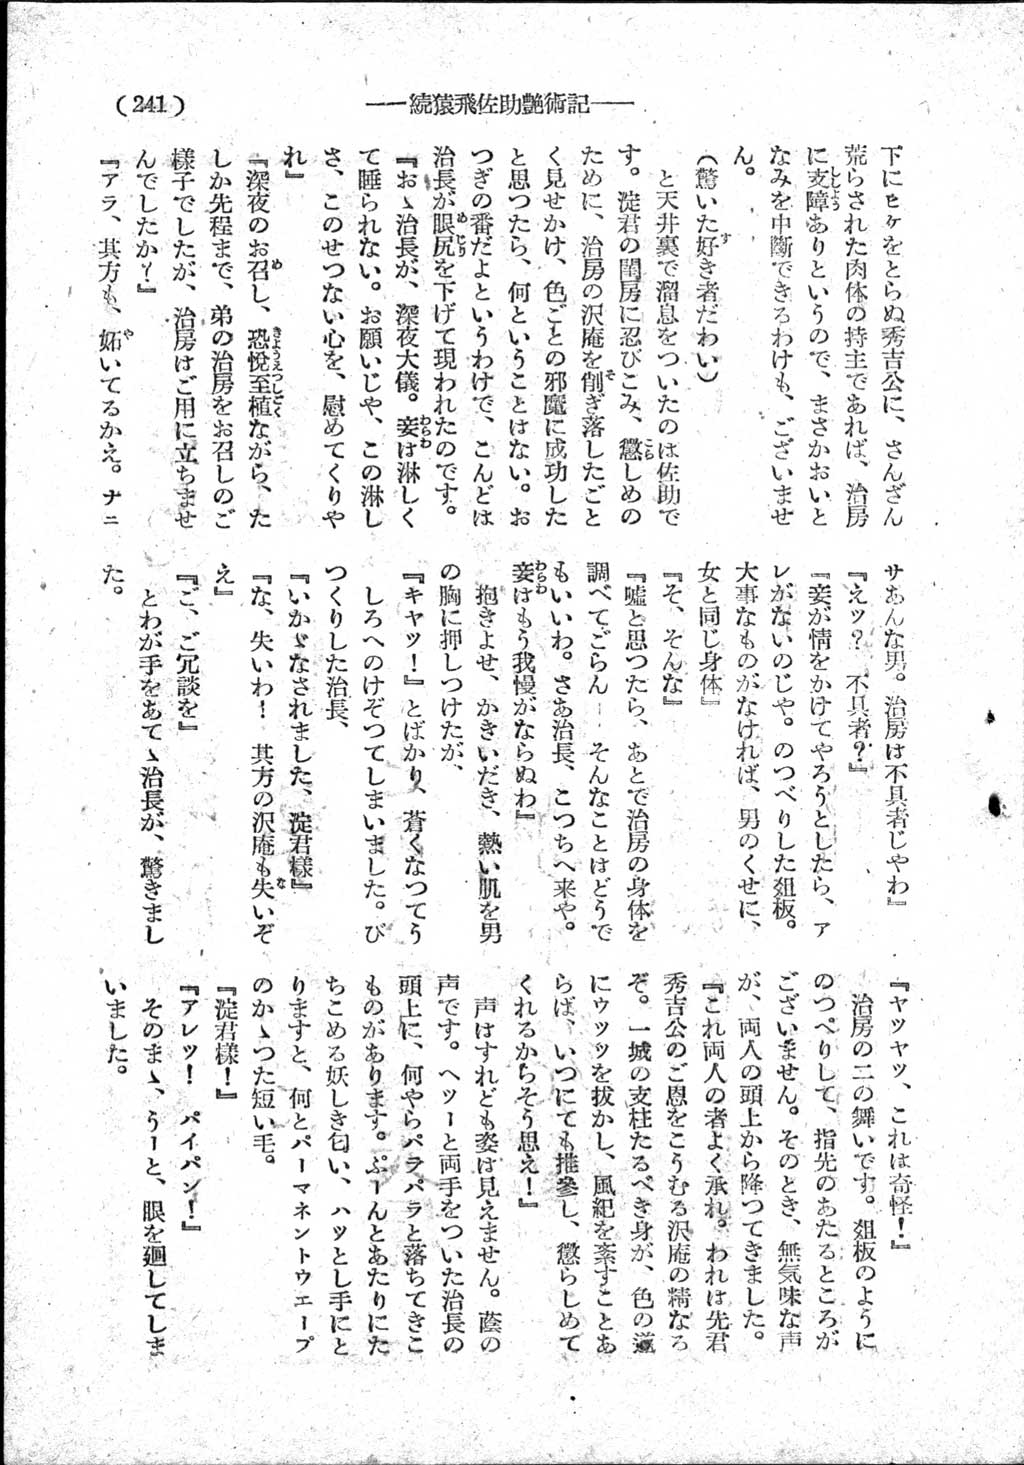 (241)
――続猿飛佐助艶術記――
下にヒケをとらぬ秀吉公に、さんざん
荒らされた肉体の持主であれば、治房
に支障ありというので、まさかおいと
なみを中断できるわけも、ございませ
ん。
(驚いた好き者だわい)
と天井裏で溜息をついたのは佐助で
す。淀君の閨房に忍びこみ、懲しめの
ために、治房の沢庵を削ぎ落したごと
く見せかけ、色ごとの邪魔に成功した
と思つたら、何ということはない。お
つぎの番だよというわけで、こんどは
治長が眼尻を下げて現われたのです。
『おゝ治長が、深夜大儀。妾は淋しく
て睡られない。お願いじや、この淋し
さ、このせつない心を、慰めてくりや
れ』
『深夜のお召し、恐悦至極ながら、た
しか先程まで、弟の治房をお召しのご
様子でしたが、治房はご用に立ちませ
んでしたか?』
『アラ、其方も、妬いてるかえ。ナニ
サあんな男。治房は不具者じやわ』
『えッ? 不具者?』
『妾が情をかけてやろうとしたら、ア
レがないのじや。のつぺりした爼板。
大事なものがなければ、男のくせに、
女と同じ身体』
『そ、そんな』
『嘘と思つたら、あとで治房の身体を
調べてごらん― そんなことはどうで
もいいわ。さあ治長、こつちへ来や。
妾はもう我慢がならぬわ』
抱きよせ、かきいだき、熱い肌を男
の胸に押しつけたが、
『キャツ!』とばかり、蒼くなつてう
しろへのけぞつてしまいました。び
つくりした治長、
『いかゞなされました、淀君様』
『な、失いわ! 其方の沢庵も失いぞ
え』
『ご、ご冗談を』
とわが手をあてゝ治長が、驚きまし
た。
『ヤツヤツ、これは奇怪!』
治房の二の舞いです。爼板のように
のつぺりして、指先のあたるところが
ございません。そのとき、無気味な声
が、両人の頭上から降つてきました。
『これ両人の者よく承れ。われは先君
秀吉公のご恩をこうむる沢庵の精なる
ぞ。一城の支柱たるべき身が、色の道
にウツツを抜かし、風紀を紊すことあ
らば、いつにても推参し、懲らしめて
くれるからそう思え!』
声はすれども姿は見えません。蔭の
声です。ヘツーと両手をついた治長の
頭上に、何やらパラパラと落ちてきこ
ものがあります。ぷーんとあたりにた
ちこめる妖しき匂い、ハッとし手にと
りますと、何とパーマネントウエーブ
のかゝつた短い毛。
『淀君様!』
『アレッ! パイパン!』
そのまゝ、うーと、眼を廻してしま
いました。